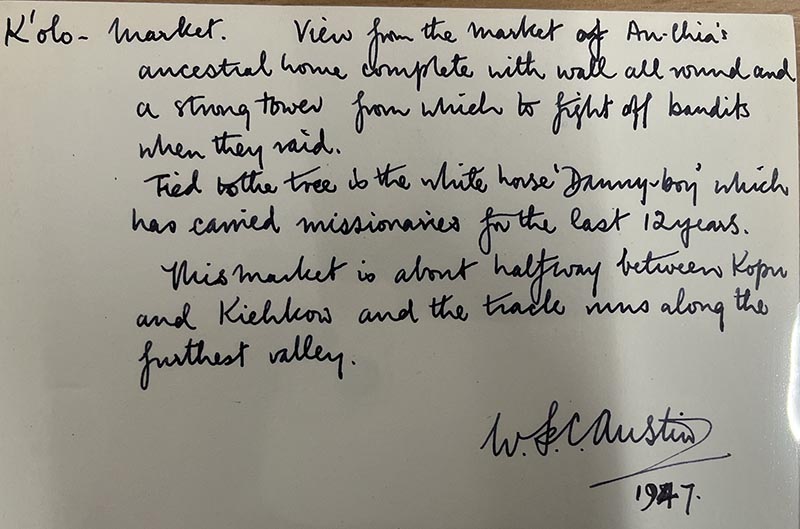 K'olo - Market. View from the market of An-Chia's
ancestral home complete with wall all round and
a strong tower from which to fight off bandits
when they raid.
Tied to the tree is the white horse 'Danny-boy' which
has carried missionaries for the last 12 years.
This market is about halfway between Kopu
and Kiehkow and the track runs along the
furthest valley.
W. Le C. Austin
1947.